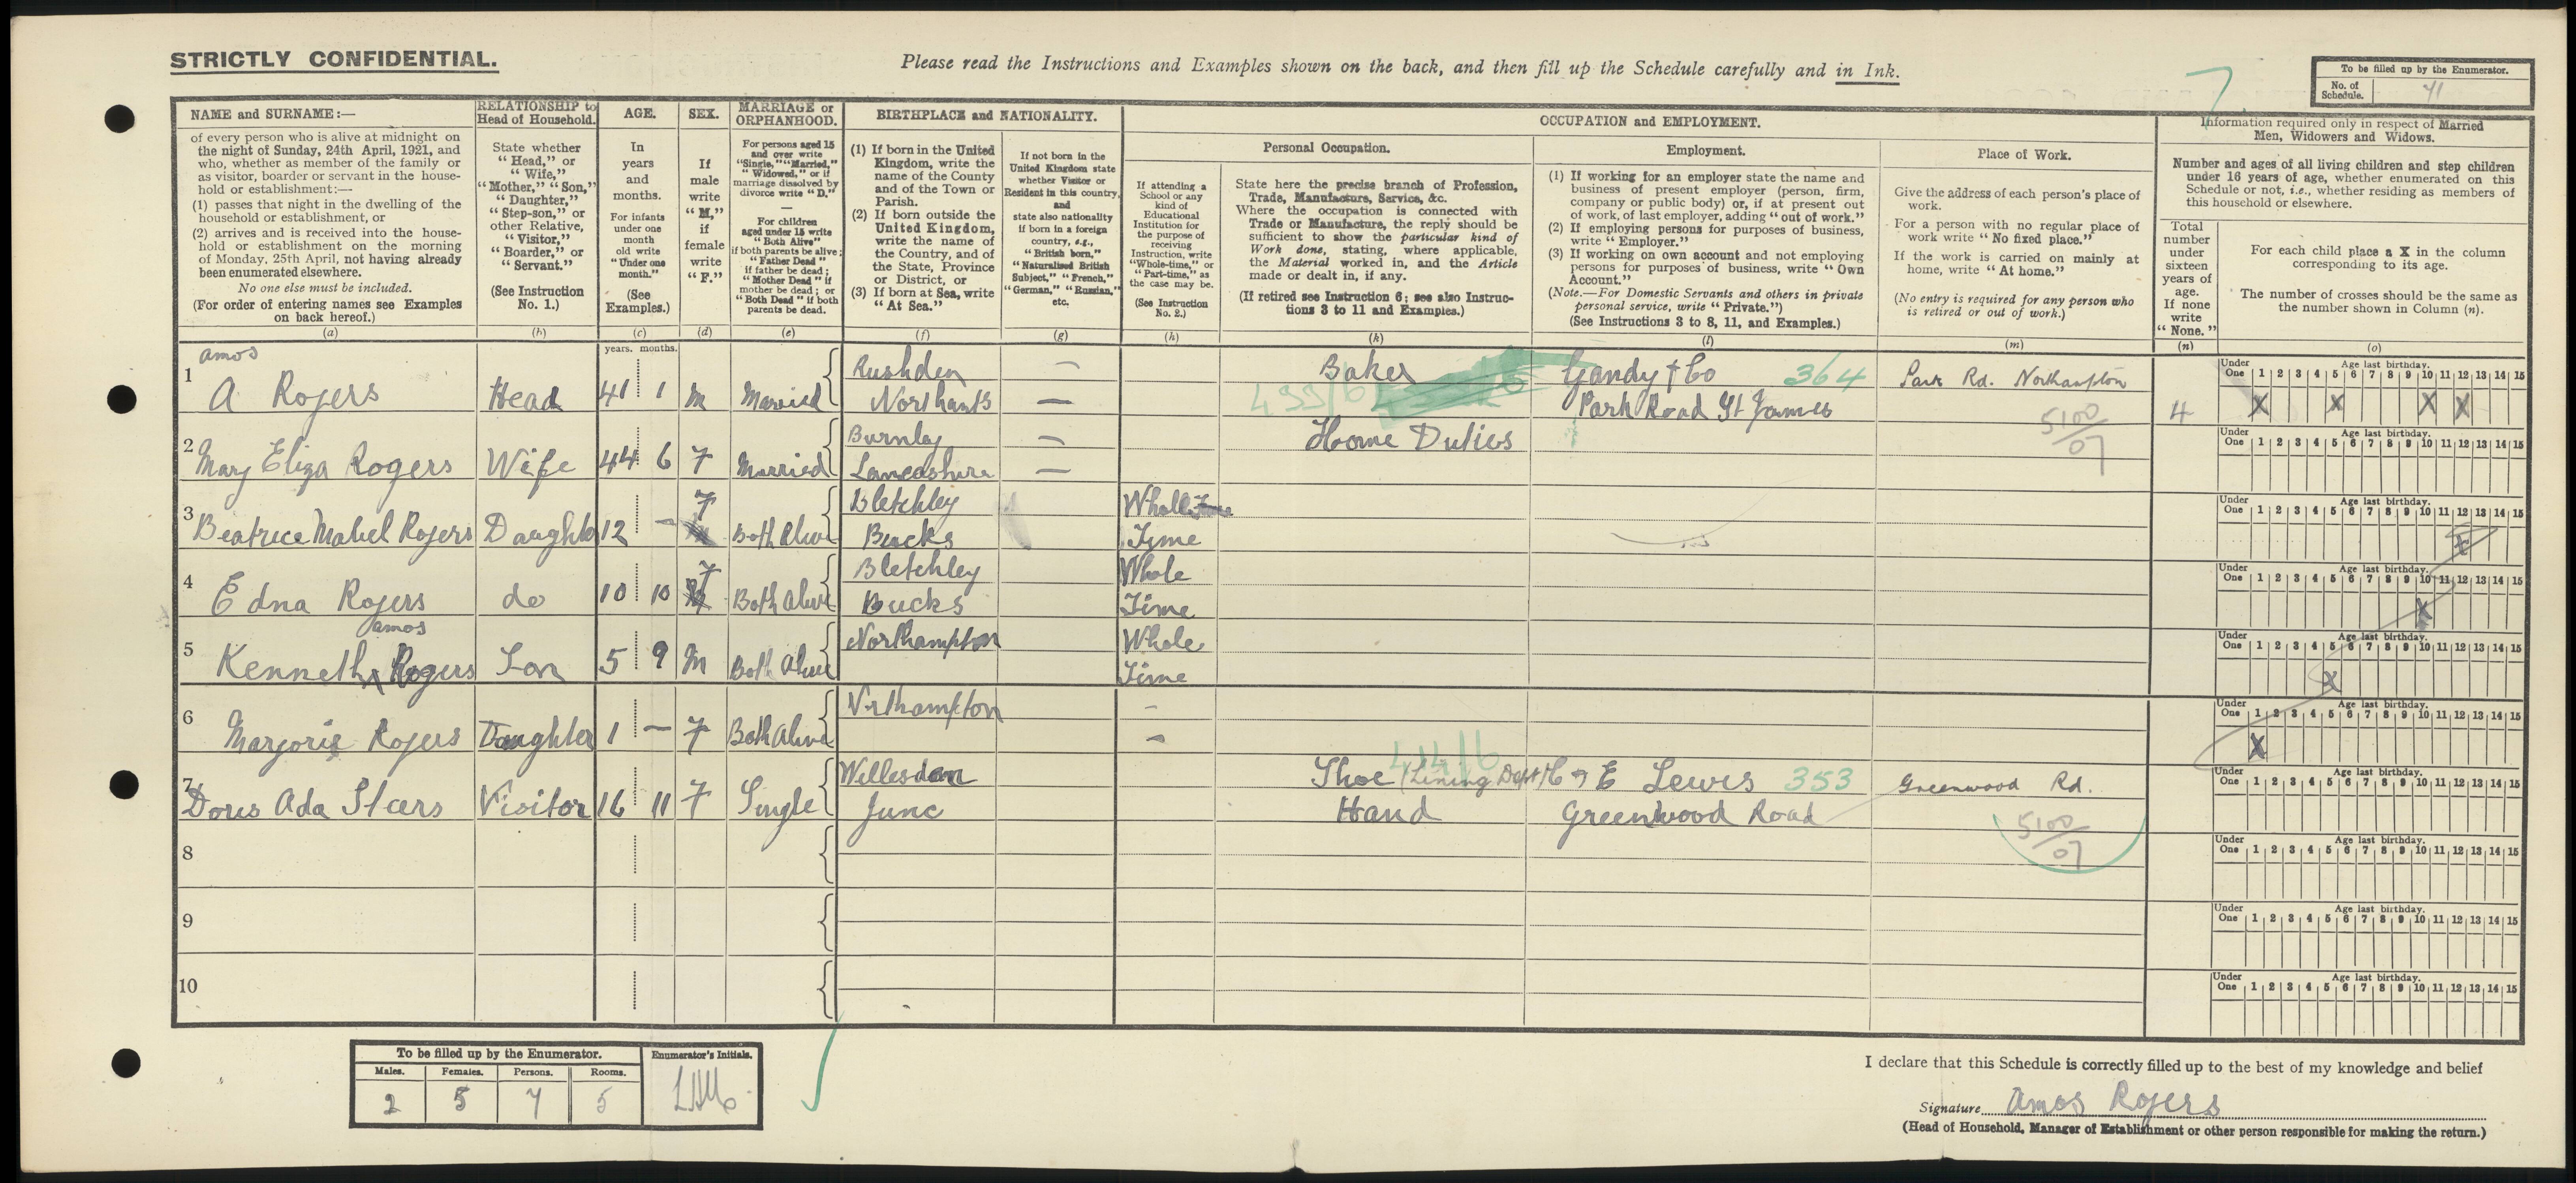 STRICTLY CONFIDENTIAL.
Please read the Instructions and Examples shown on the back, and then fill up the Schedule carefully and in Ink.
To be filled up by the Enumerator.
No. of Schedule. 41
NAME and SURNAME:—
of every person who is alive at midnight on
the night of Sunday, 24th April, 1921, and
who, whether as member of the family or
as visitor, boarder or servant in the house-
hold or establishment:—
(1) passes that night in the dwelling of the
household or establishment, or
(2) arrives and is received into the house-
hold or establishment on the morning
of Monday, 25th April, not having already
been enumerated elsewhere.
No one else must be included.
(For order of entering names see Examples
on back hereof.)
(a)
RELATIONSHIP to
Head of Household.
State whether
"Head," or
"Wife,"
"Mother," "Son,"
"Daughter,"
"Step-son," or
other Relative,
"Visitor,"
"Boarder," or
"Servant."
(See Instruction
No. 1.)
(b)
AGE.
In
years
and
months.
For infants
under one
month
old write
"Under one
month."
(See
Examples.)
(c)
SEX.
If
male
write
"M,"
if
female
write
"F."
(d)
MARRIAGE or
ORPHANHOOD.
For persons aged 15
and over write
"Single," "Married,"
"Widowed," or if
marriage dissolved by
divorce write "D."
—
For children
aged under 15 write
"Both Alive"
if both parents be alive;
"Father Dead"
if father be dead;
"Mother Dead" if
mother be dead; or
"Both Dead" if both
parents be dead.
(e)
BIRTHPLACE and NATIONALITY.
(1) If born in the United
Kingdom, write the
name of the County
and of the Town or
Parish.
(2) If born outside the
United Kingdom,
write the name of
the Country, and of
the State, Province
or District, or
(3) If born at Sea, write
"At Sea."
(f)
If not born in the
United Kingdom state
whether Visitor or
Resident in this country,
and
state also nationality
if born in a foreign
country, e.g.,
"British born,"
"Naturalised British
Subject," "French,"
"German," "Russian,"
etc.
(g)
OCCUPATION and EMPLOYMENT.
If attending a
School or any
kind of
Educational
Institution for
the purpose of
receiving
Instruction, write
"Whole-time," or
"Part-time," as
the case may be.
(See Instruction
No. 2.)
(h)
Personal Occupation.
State here the precise branch of Profession,
Trade, Manufacture, Service, &c.
Where the occupation is connected with
Trade or Manufacture, the reply should be
sufficient to show the particular kind of
Work done, stating, where applicable,
the Material worked in, and the Article
made or dealt in, if any.
(If retired see Instruction 6; see also Instruc-
tions 3 to 11 and Examples.)
(k)
Employment.
(1) If working for an employer state the name and
business of present employer (person, firm,
company or public body) or, if at present out
of work, of last employer, adding "out of work."
(2) If employing persons for purposes of business,
write "Employer."
(3) If working on own account and not employing
persons for purposes of business, write "Own
Account."
(Note.—For Domestic Servants and others in private
personal service, write "Private.")
(See Instructions 3 to 8, 11, and Examples.)
(l)
Place of Work.
Give the address of each person's place of
work.
For a person with no regular place of
work write "No fixed place."
If the work is carried on mainly at
home, write "At home."
(No entry is required for any person who
is retired or out of work.)
(m)
Information required only in respect of Married
Men, Widowers and Widows.
Number and ages of all living children and step children
under 16 years of age, whether enumerated on this
Schedule or not, i.e., whether residing as members of
this household or elsewhere.
Total
number
under
sixteen
years of
age.
If none
write
"None."
(n)
For each child place a X in the column
corresponding to its age.
The number of crosses should be the same as
the number shown in Column (n).
(o)
years. months.
Amos
1 A Rogers Head 41 1 M Married Rushden Northants — — Baker 433/6 Gandy & Co 364 Park Road St James Park Rd. Northampton 5100/07 4
Under One 1 2 3 4 5 6 7 8 9 10 11 12 13 14 15 Age last birthday. X X X X
2 Mary Eliza Rogers Wife 44 6 F Married Burnley Lancashire — — Home Duties
Under One 1 2 3 4 5 6 7 8 9 10 11 12 13 14 15 Age last birthday.
3 Beatrice Mabel Rogers Daughter 12 — F Both Alive Bletchley Bucks Whole Time
Under One 1 2 3 4 5 6 7 8 9 10 11 12 13 14 15 Age last birthday. X
4 Edna Rogers do 10 10 F Both Alive Bletchley Bucks Whole Time
Under One 1 2 3 4 5 6 7 8 9 10 11 12 13 14 15 Age last birthday. X
Amos
5 Kenneth Rogers Son 5 9 M Both Alive Northampton Whole Time
Under One 1 2 3 4 5 6 7 8 9 10 11 12 13 14 15 Age last birthday. X
6 Marjorie Rogers Daughter 1 — F Both Alive Northampton — —
Under One 1 2 3 4 5 6 7 8 9 10 11 12 13 14 15 Age last birthday. X
7 Doris Ada Steers Visitor 16 11 F Single Willesden Junc Shoe (Lining Dept) Hand 414/6 C & E Lewis 353 Greenwood Road Greenwood Rd. 5100/07
Under One 1 2 3 4 5 6 7 8 9 10 11 12 13 14 15 Age last birthday.
8
Under One 1 2 3 4 5 6 7 8 9 10 11 12 13 14 15 Age last birthday.
9
Under One 1 2 3 4 5 6 7 8 9 10 11 12 13 14 15 Age last birthday.
10
Under One 1 2 3 4 5 6 7 8 9 10 11 12 13 14 15 Age last birthday.
To be filled up by the Enumerator.
Males. Females. Persons. Rooms.
2 5 7 5
Enumerator's Initials.
I declare that this Schedule is correctly filled up to the best of my knowledge and belief
Signature Amos Rogers
(Head of Household, Manager of Establishment or other person responsible for making the return.)